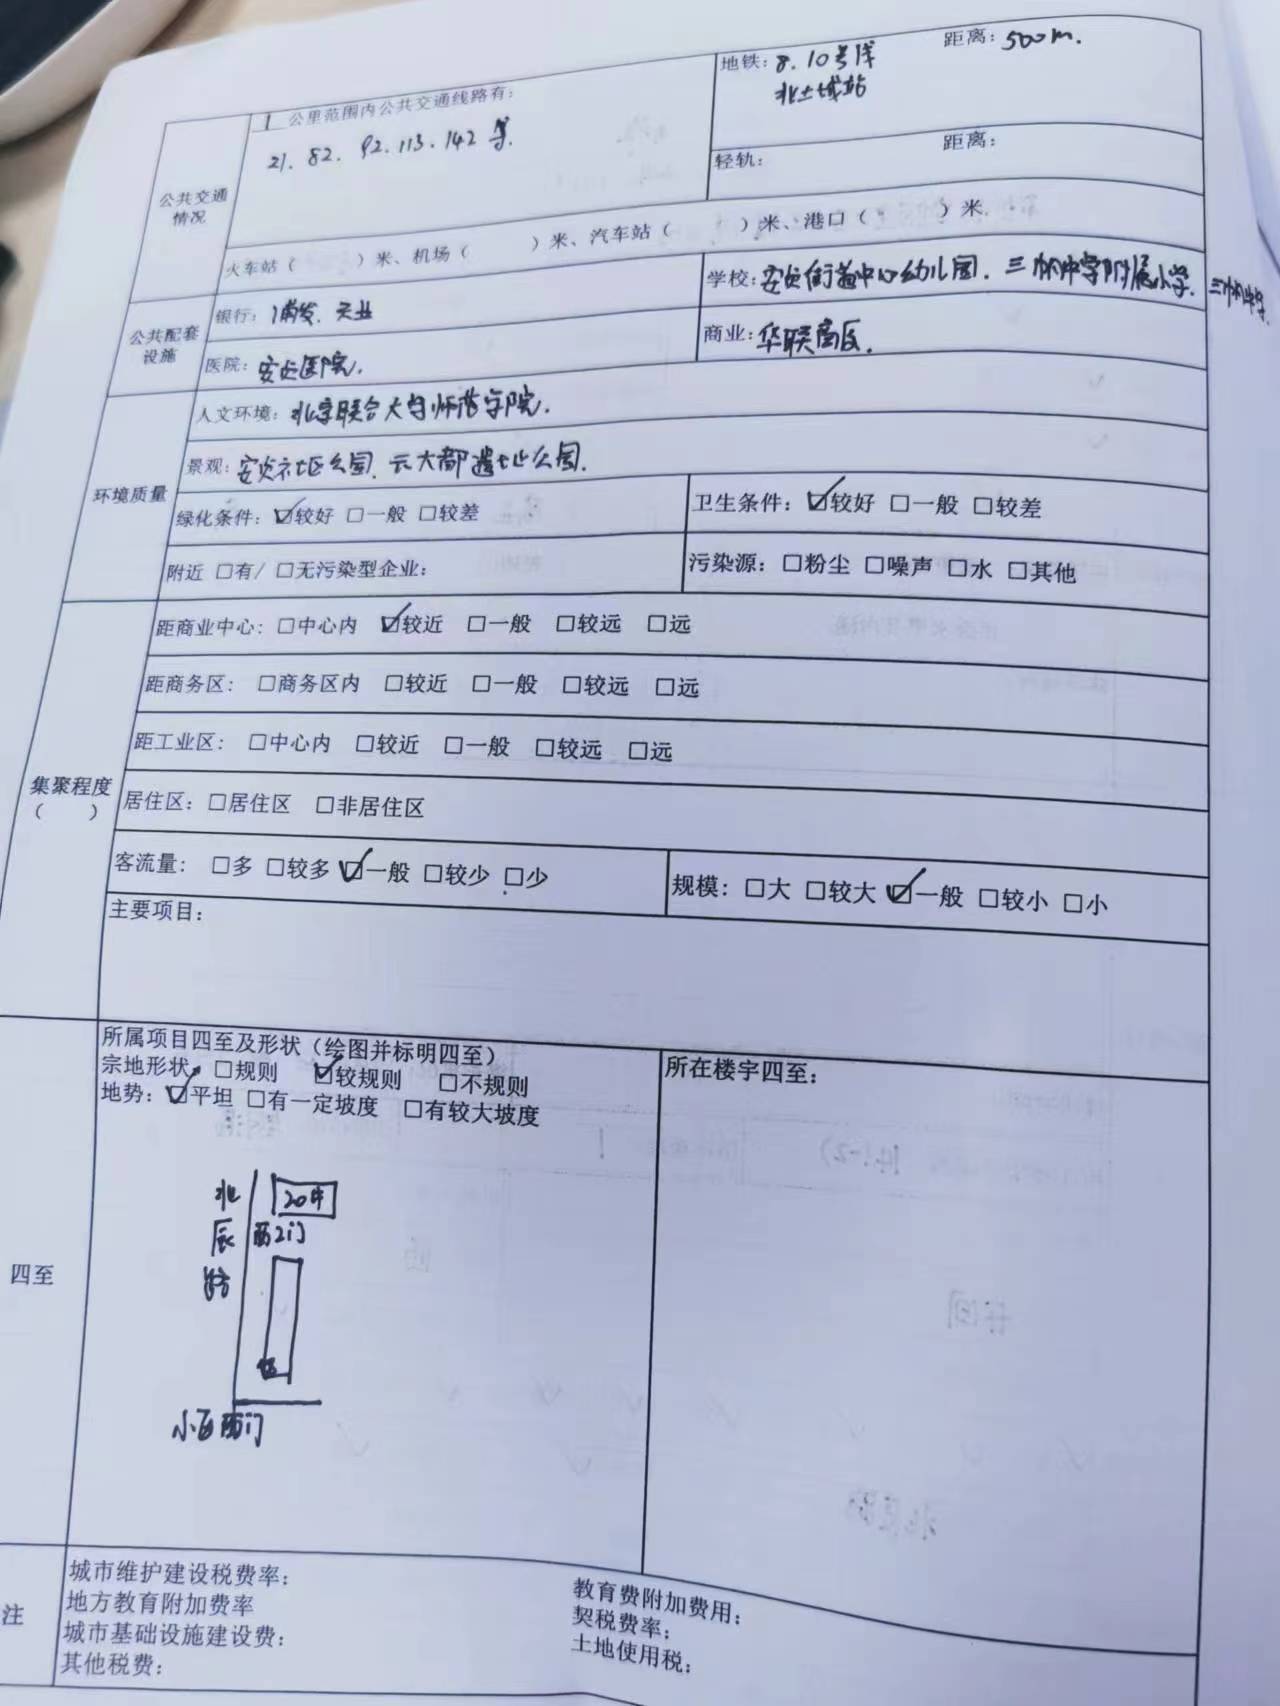 1 公里范围内公共交通线路有：
21. 82. 92. 113. 142 等.
地铁：8. 10号线 距离：500m.
北土城站
轻轨： 距离：
公共交通
情况
火车站（ ）米、机场（ ）米、汽车站（ ）米、港口（ ）米.
公共配套
设施
银行：浦发. 兴业
学校：安贞街道中心幼儿园. 三帆中学附属小学.
医院：安贞医院.
商业：华联商厦.
环境质量
人文环境：北京联合大学师范学院.
景观：安贞社区公园. 元大都遗址公园.
绿化条件：☑较好 □一般 □较差
卫生条件：☑较好 □一般 □较差
附近 □有/ □无污染型企业：
污染源：□粉尘 □噪声 □水 □其他
集聚程度
（ ）
距商业中心：□中心内 ☑较近 □一般 □较远 □远
距商务区：□商务区内 □较近 □一般 □较远 □远
距工业区：□中心内 □较近 □一般 □较远 □远
居住区：□居住区 □非居住区
客流量：□多 □较多 ☑一般 □较少 □少
规模：□大 □较大 ☑一般 □较小 □小
主要项目：
四至
所属项目四至及形状（绘图并标明四至）
宗地形状：□规则 ☑较规则 □不规则
地势：☑平坦 □有一定坡度 □有较大坡度
所在楼宇四至：
北辰路
20#
西2门
小区西门
注
城市维护建设税费率：
地方教育附加费率
城市基础设施建设费：
其他税费：
教育费附加费用：
契税费率：
土地使用税：